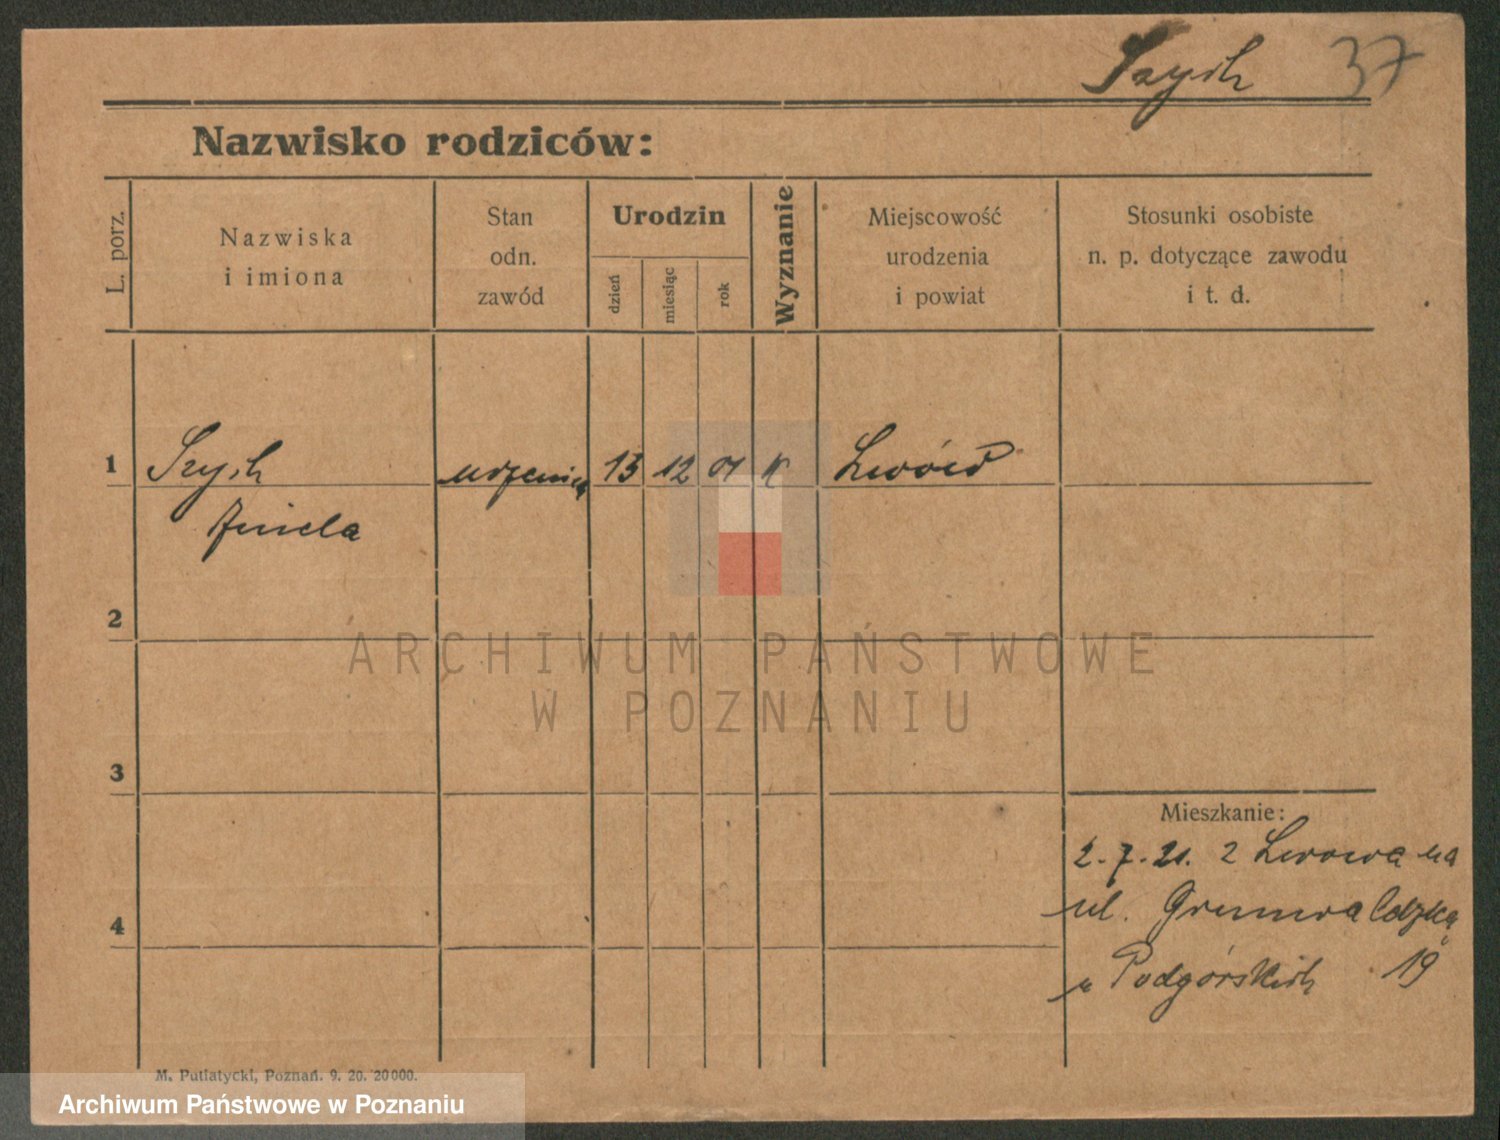 Szych 37
Nazwisko rodziców:
L. porz.
Nazwiska
i imiona
Stan
odn.
zawód
Urodzin
dzień
miesiąc
rok
Wyznanie
Miejscowość
urodzenia
i powiat
Stosunki osobiste
n. p. dotyczące zawodu
i t. d.
1 Szych 13 12 01 K Lwów
Aniela
2
3
4
ARCHIWUM PAŃSTWOWE
W POZNANIU
Mieszkanie:
2.7.21. z Lwowa na
ul. Grunwaldzką
u Podgórskich 19
M. Putiatycki, Poznań. 9. 20. 20000.
Archiwum Państwowe w Poznaniu